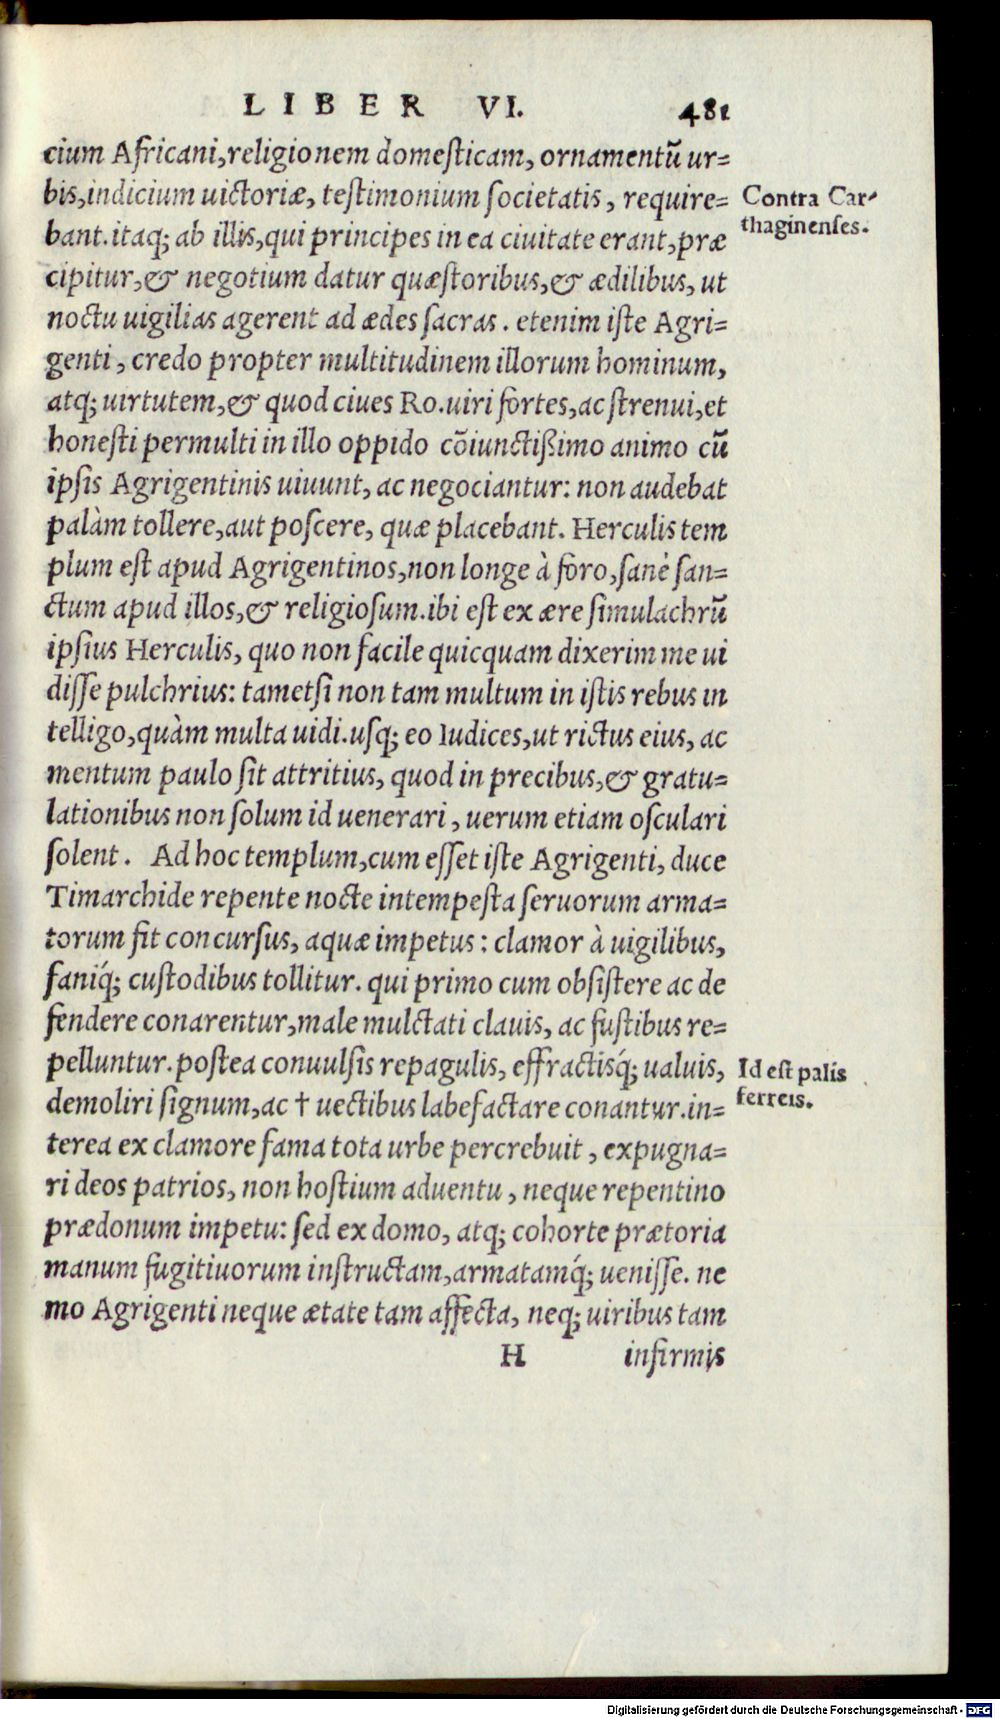 LIBER VI. 481
cium Africani, religionem domesticam, ornamentũ ur=
bis, indicium uictoriæ, testimonium societatis, require=
Contra Car-
thaginenses.
bant. itaq; ab illis, qui principes in ea ciuitate erant, præ
cipitur, & negotium datur quæstoribus, & ædilibus, ut
noctu uigilias agerent ad ædes sacras. etenim iste Agri=
genti, credo propter multitudinem illorum hominum,
atq; uirtutem, & quod ciues Ro. uiri fortes, ac strenui, et
honesti permulti in illo oppido cõiunctißimo animo cũ
ipsis Agrigentinis uiuunt, ac negociantur: non audebat
palàm tollere, aut poscere, quæ placebant. Herculis tem
plum est apud Agrigentinos, non longe à foro, sanè san=
ctum apud illos, & religiosum. ibi est ex ære simulachrũ
ipsius Herculis, quo non facile quicquam dixerim me ui
disse pulchrius: tametsi non tam multum in istis rebus in
telligo, quàm multa uidi. usq; eo Iudices, ut rictus eius, ac
mentum paulo sit attritius, quod in precibus, & gratu=
lationibus non solum id uenerari, uerum etiam osculari
solent. Ad hoc templum, cum esset iste Agrigenti, duce
Timarchide repente nocte intempesta seruorum arma=
torum fit concursus, aquæ impetus: clamor à uigilibus,
faniq́; custodibus tollitur. qui primo cum obsistere ac de
fendere conarentur, male mulctati clauis, ac fustibus re=
pelluntur. postea conuulsis repagulis, effractisq́; ualuis,
Id est palis
ferreis.
demoliri signum, ac † uectibus labefactare conantur. in=
terea ex clamore fama tota urbe percrebuit, expugna=
ri deos patrios, non hostium aduentu, neque repentino
prædonum impetu: sed ex domo, atq; cohorte prætoria
manum fugitiuorum instructam, armatamq́; uenisse. ne
mo Agrigenti neque ætate tam affecta, neq; uiribus tam
H infirmis
Digitalisierung gefördert durch die Deutsche Forschungsgemeinschaft - DFG